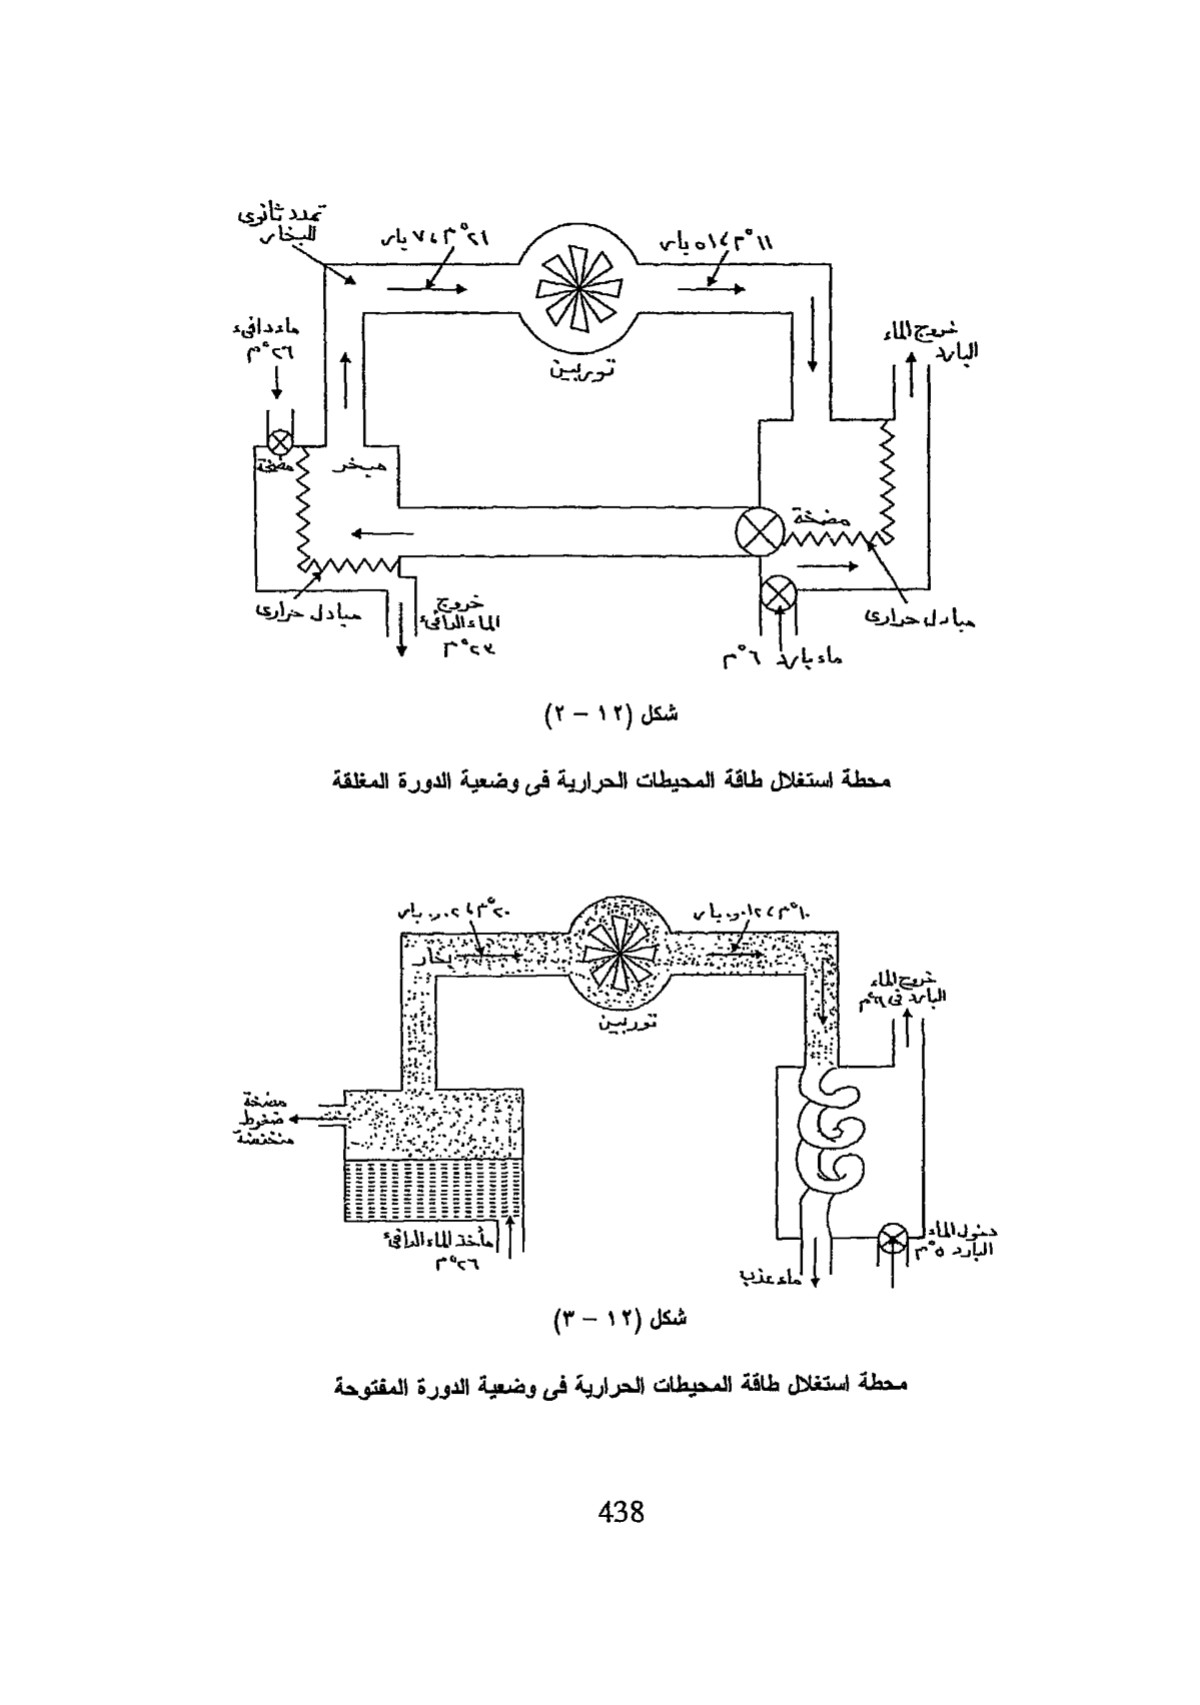 تمدد ثانوى
للبخار
٢١°م، ٧ بار
١١°م، ٥١ بار
ماء دافىء
٢٦°م
خروج الماء
البارد
توربين
مضخة
مبخر
مضخة
مبادل حرارى
خروج
الماء الدافئ
٢٣°م
مبادل حرارى
ماء بارد ٦°م
شكل (١٢ – ٢)
محطة استغلال طاقة المحيطات الحرارية فى وضعية الدورة المغلقة
٢٠°م، ٠٢ر. بار
١٠°م، ٠١٢ر. بار
بخار
توربين
خروج الماء
البارد فى ٦°م
مضخة
ضغوط
منخفضة
مأخذ الماء الدافئ
٢٦°م
دخول الماء
البارد ٥°م
ماء عذب
شكل (١٢ – ٣)
محطة استغلال طاقة المحيطات الحرارية فى وضعية الدورة المفتوحة
438